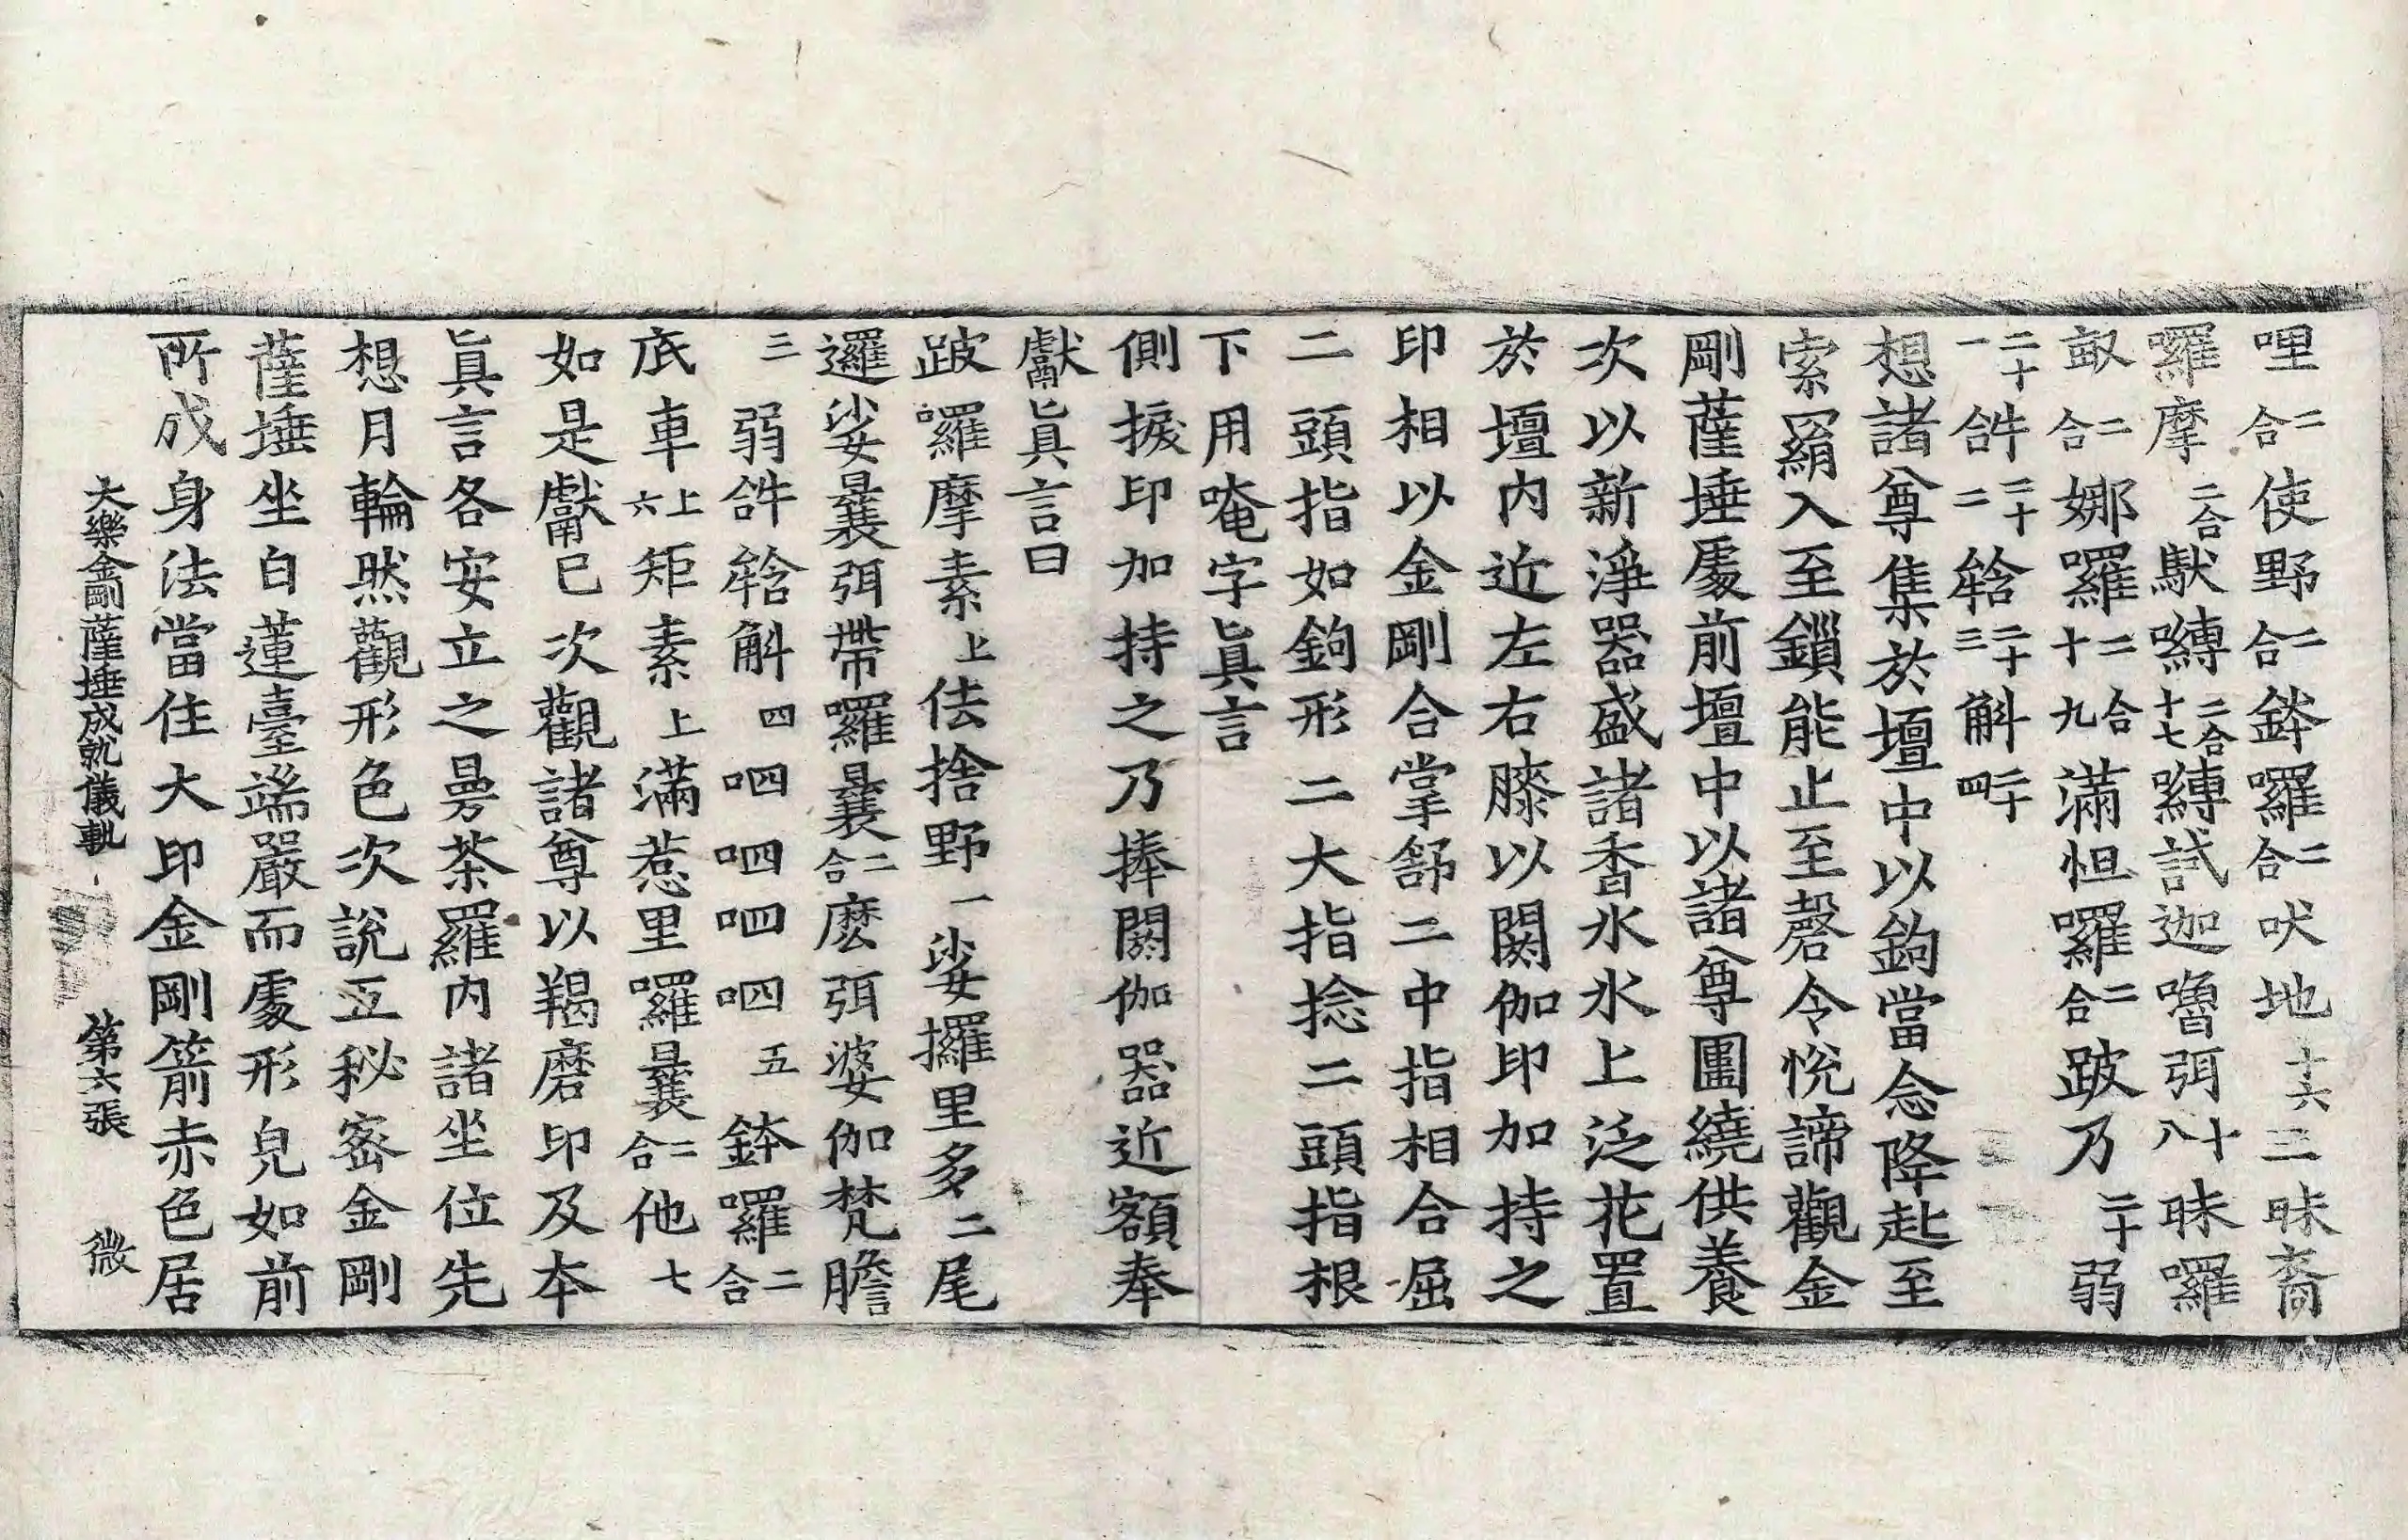 哩二合使野二合鉢囉二合吠地十六三昧裔
囉摩二合馱嚩二合十七嚩試迦嚕弭十八昧囉
㝹二合娜囉二合十九滿怛囉二合跛乃二十弱
二十一𤙖二十二𤚥二十三斛二十四
想諸尊集於壇中以鉤當念降赴至
索羂入至鎖能止至磬令悅諦觀金
剛薩埵處前壇中以諸尊圍繞供養
次以新淨器盛諸香水水上泛花置
於壇內近左右膝以閼伽印加持之
印相以金剛合掌舒二中指相合屈
二頭指如鉤形二大指捻二頭指根
下用唵字眞言
側捩印加持之乃捧閼伽器近額奉
獻眞言曰
跛囉摩素上佉捨野一娑攞里多二尾
邏娑曩弭帶囉曩二合麽弭婆伽梵膽
三弱𤙖𤚥斛四呬呬呬呬五鉢囉二合
底車上六矩素上滿惹里囉曩二合他七
如是獻已次觀諸尊以羯磨印及本
眞言各安立之曼荼羅內諸坐位先
想月輪然觀形色次說五秘密金剛
薩埵坐白蓮臺端嚴而處形皃如前
所成身法當住大印金剛箭赤色居
大樂金剛薩埵成就儀軌　第六張　微